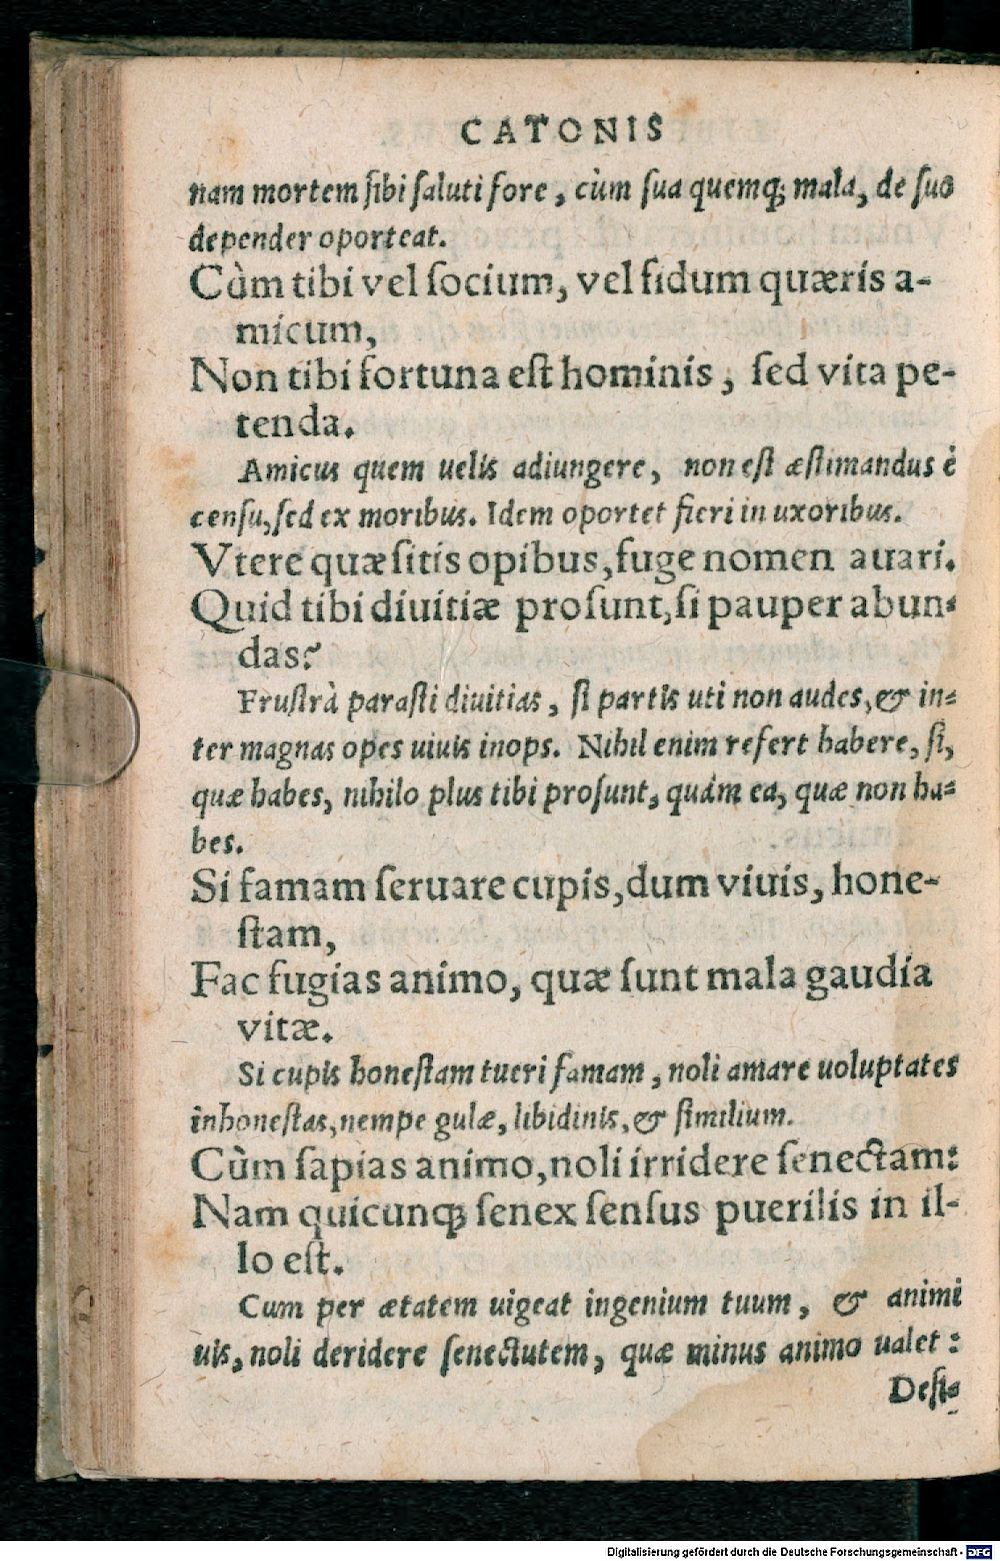 CATONIS
nam mortem ſibi ſaluti fore, cùm ſua quemq́; mala, de ſuo
depender oporteat.
Cùm tibi vel ſocium, vel fidum quæris a-
micum,
Non tibi fortuna eſt hominis, ſed vita pe-
tenda.
Amicus quem uelis adiungere, non eſt æſtimandus è
cenſu, ſed ex moribus. Idem oportet fieri in uxoribus.
Vtere quæſitis opibus, fuge nomen auari.
Quid tibi diuitiæ proſunt, ſi pauper abun-
das?
Fruſtrà paraſti diuitias, ſi partis uti non audes, & in-
ter magnas opes uiuis inops. Nihil enim refert habere, ſi,
quæ habes, nihilo plus tibi proſunt, quàm ea, quæ non ha-
bes.
Si famam ſeruare cupis, dum viuis, hone-
ſtam,
Fac fugias animo, quæ ſunt mala gaudia
vitæ.
Si cupis honeſtam tueri famam, noli amare uoluptates
inhoneſtas, nempe gulæ, libidinis, & ſimilium.
Cùm ſapias animo, noli irridere ſenectam:
Nam quicunq; ſenex ſenſus puerilis in il-
lo eſt.
Cum per ætatem uigeat ingenium tuum, & animi
uis, noli deridere ſenectutem, quæ minus animo ualet:
Deſi-
Digitalisierung gefördert durch die Deutsche Forschungsgemeinschaft - DFG